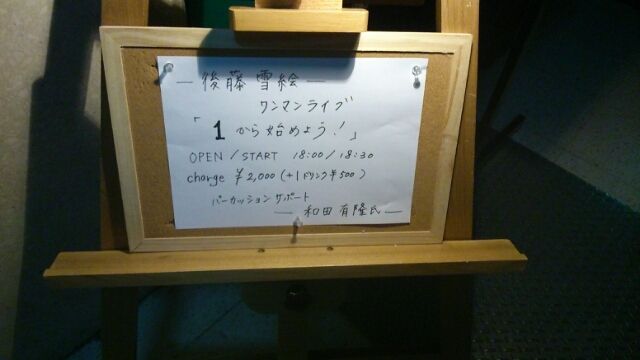 — 後藤 雪絵 —
ワンマンライブ
「1から始めよう!」
OPEN / START 18:00 / 18:30
charge ¥2,000 (+1ドリンク¥500)
パーカッションサポート
— 和田 有隆氏 —